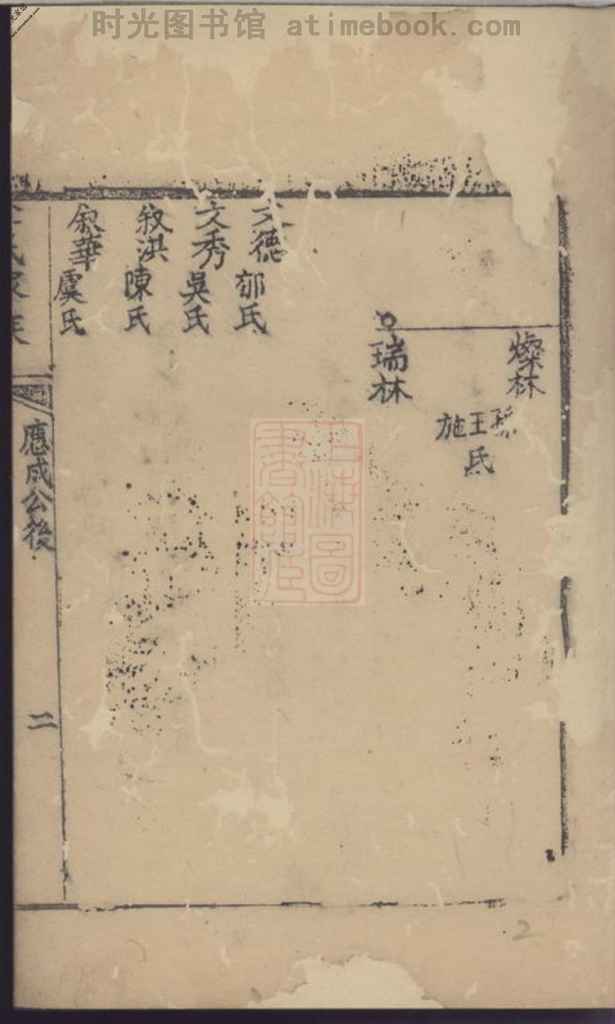 时光图书馆 atimebook.com
燦林
王氏
施
瑞林
文德 郁氏
文秀 吳氏
叙洪 陳氏
叙華 虞氏
應成公後
二
2